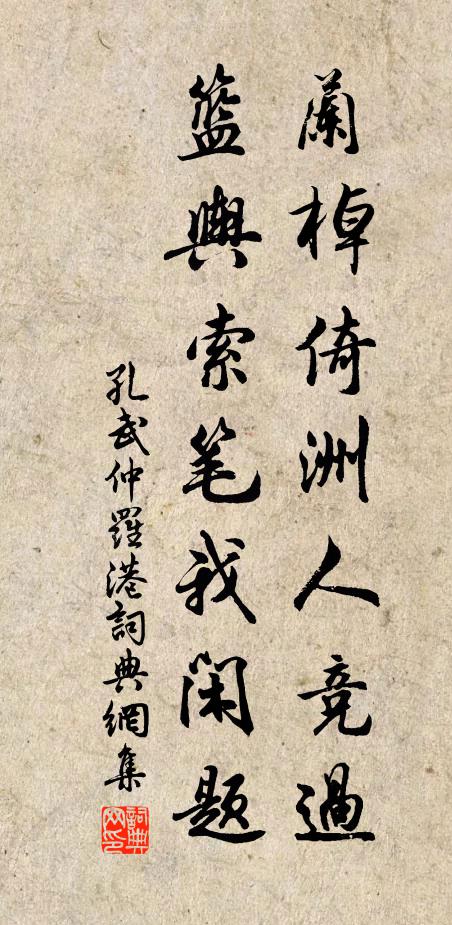 蘭棹倚洲人竞過
籃輿索笔我閑题
孔武仲羅港詞典網集
詞典网印